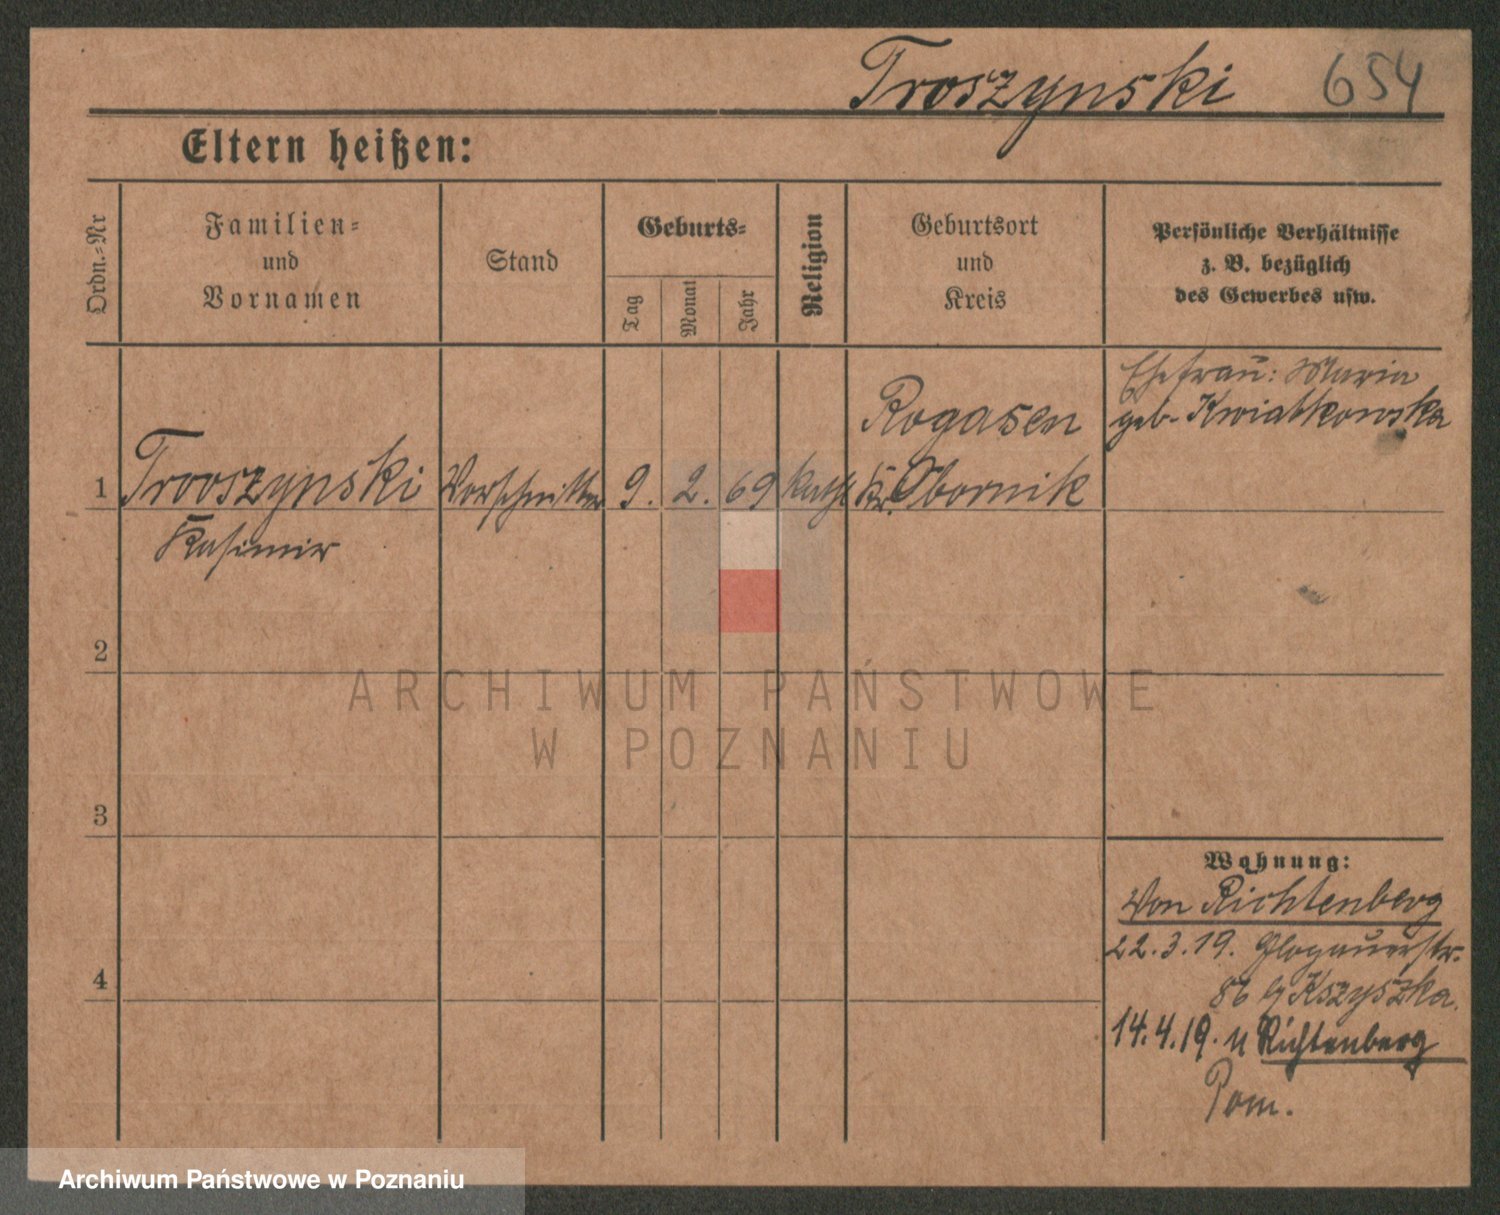 Troszynski 654
Eltern heißen:
Ordn.-Nr
Familien-
und
Vornamen
Stand
Geburts-
Tag
Monat
Jahr
Religion
Geburtsort
und
Kreis
Persönliche Verhältnisse
z. B. bezüglich
des Gewerbes usw.
Ehefrau: Maria
geb. Kwiatkowska
Rogasen
1 Trooszynski Vorschnitter 9. 2. 69 kath Kr. Obornik
Kasimir
2
ARCHIWUM PAŃSTWOWE
W POZNANIU
3
Wohnung:
Von Richtenberg
22.3.19. Glogauerstr.
86 b/ Kszyszka.
4
14.4.19. n Richtenberg
Pom.
Archiwum Państwowe w Poznaniu